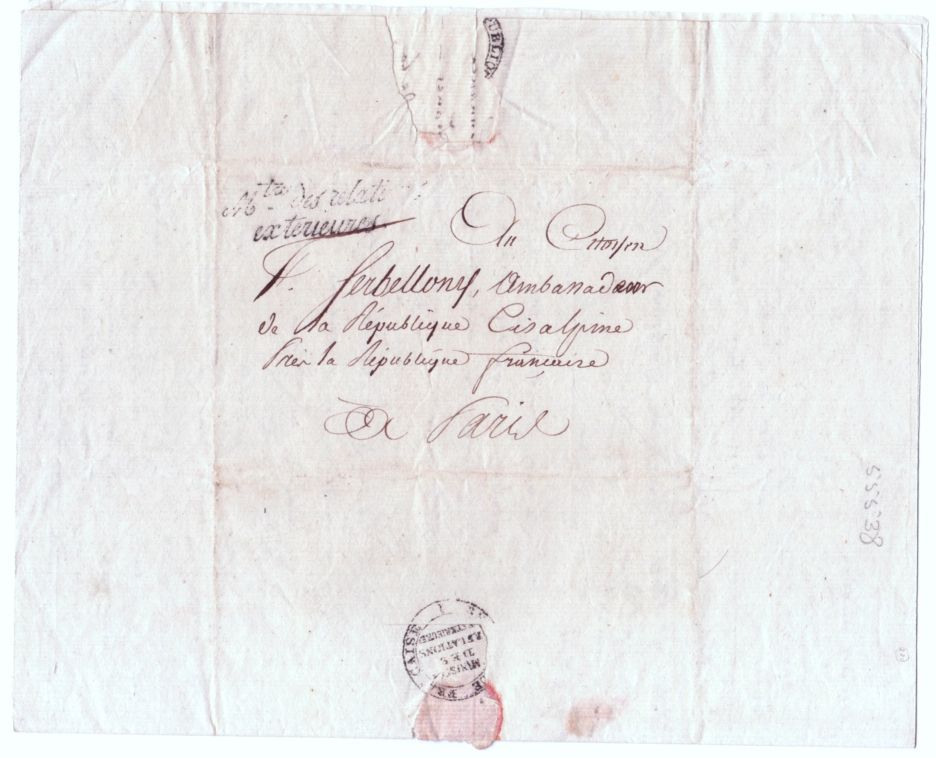 UBLIQ
M.^tre Des relati
exterieures.
Au Citoyen
F. Serbellony, Ambassadeur
de la République Cisalpine
Près la République française
A Paris
55538
CAISE
MINIS
DES
RELATIONS
EXTERIEURES